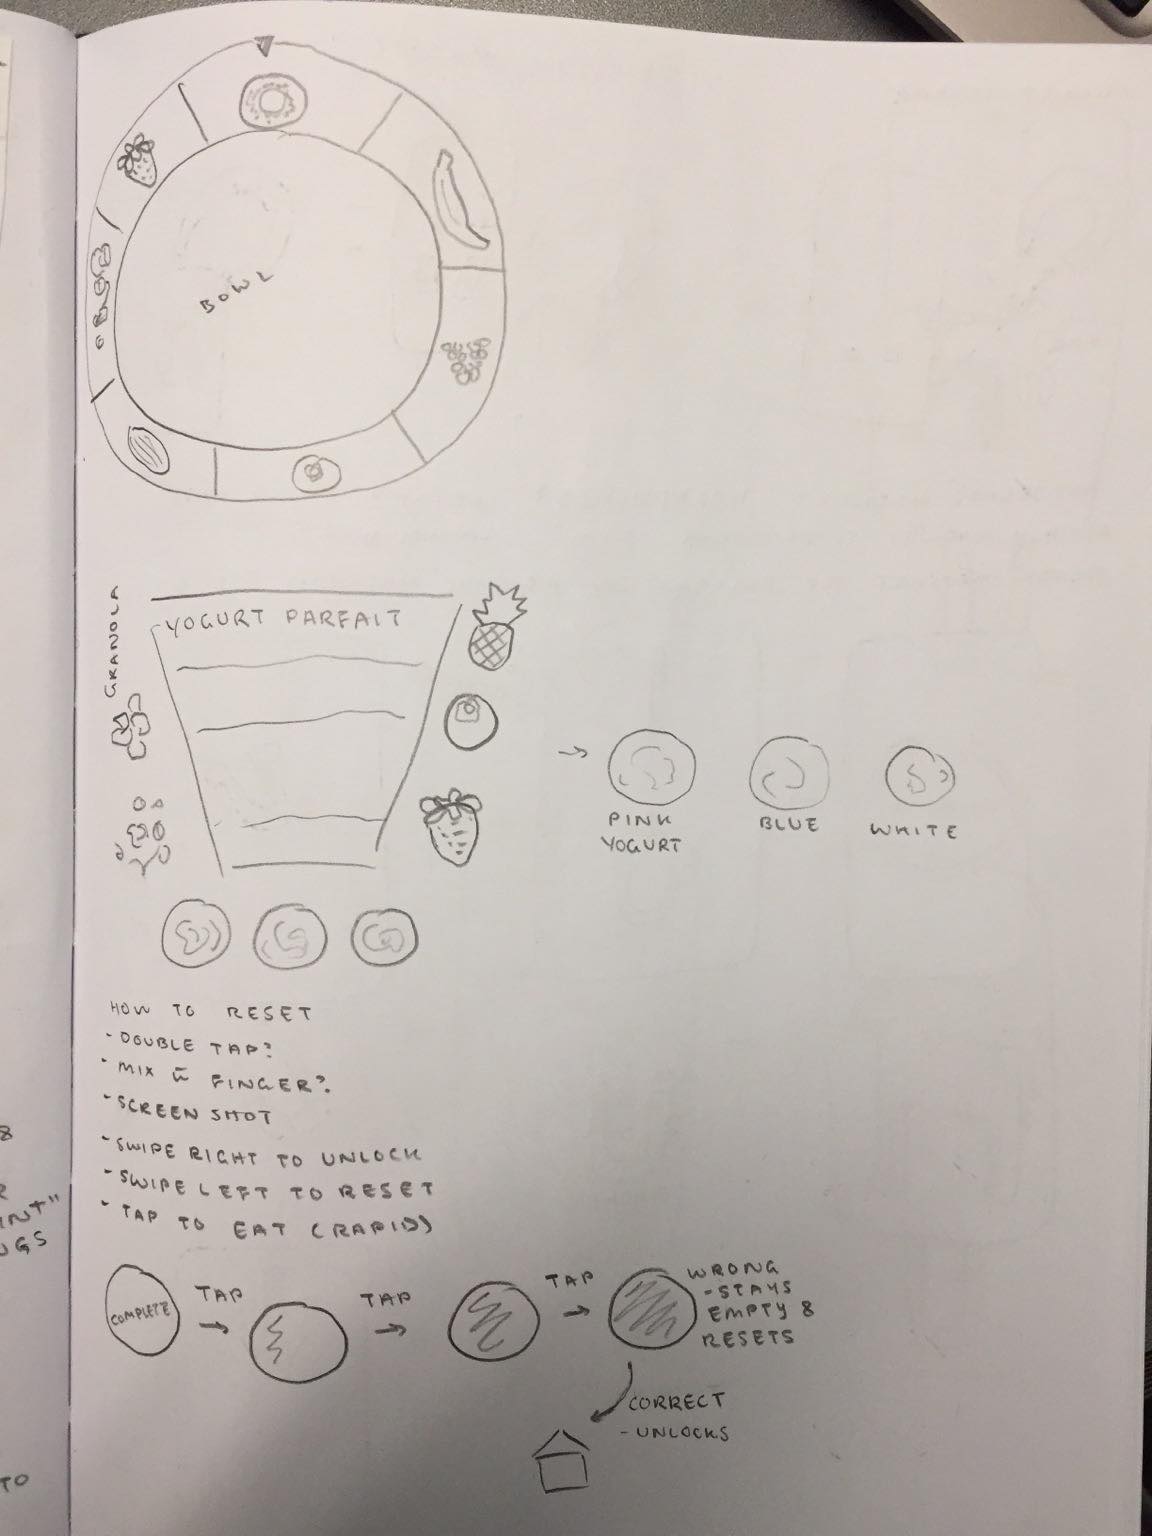 BOWL
GRANOLA
YOGURT PARFAIT
PINK
YOGURT
BLUE
WHITE
HOW TO RESET
- DOUBLE TAP?
- MIX c̄ FINGER?
- SCREEN SHOT
- SWIPE RIGHT TO UNLOCK
- SWIPE LEFT TO RESET
- TAP TO EAT (RAPID)
COMPLETE
TAP
TAP
TAP
WRONG
- STAYS
EMPTY &
RESETS
CORRECT
- UNLOCKS
TO